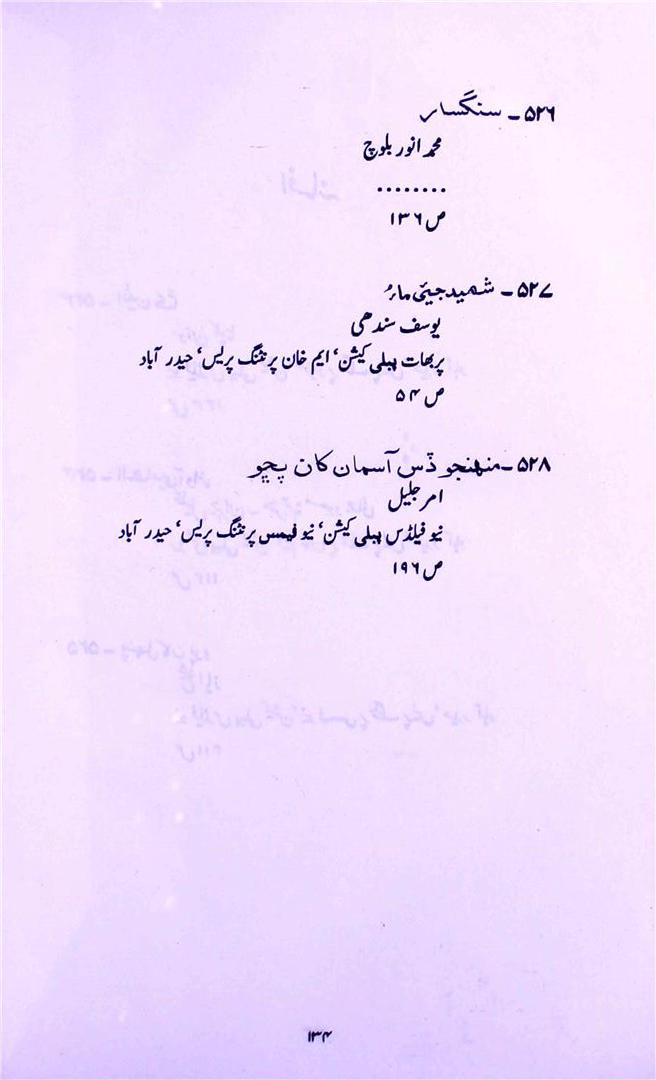 ۵۲۶ ۔ سنگسار
محمد انور بلوچ
........
ص ۱۳۶
۵۲۷ ۔ شهيد جيئي ماءُ
یوسف سندھی
پربھات پبلی کیشن‘ ایم خان پرنٹنگ پریس‘ حیدر آباد
ص ۵۴
۵۲۸ ۔ منهنجو ڏس آسمان کان پڇو
امر جلیل
نیو فیلڈس پبلی کیشن‘ نیو فیمس پرنٹنگ پریس‘ حیدر آباد
ص ۱۹۶
۱۳۴